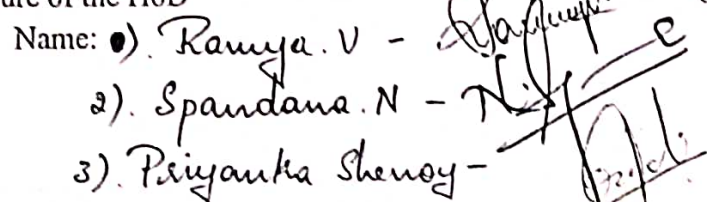 ure of the HoD
Name: 1). Ramya. V -
2). Spandana. N -
3). Priyanka Shenoy -